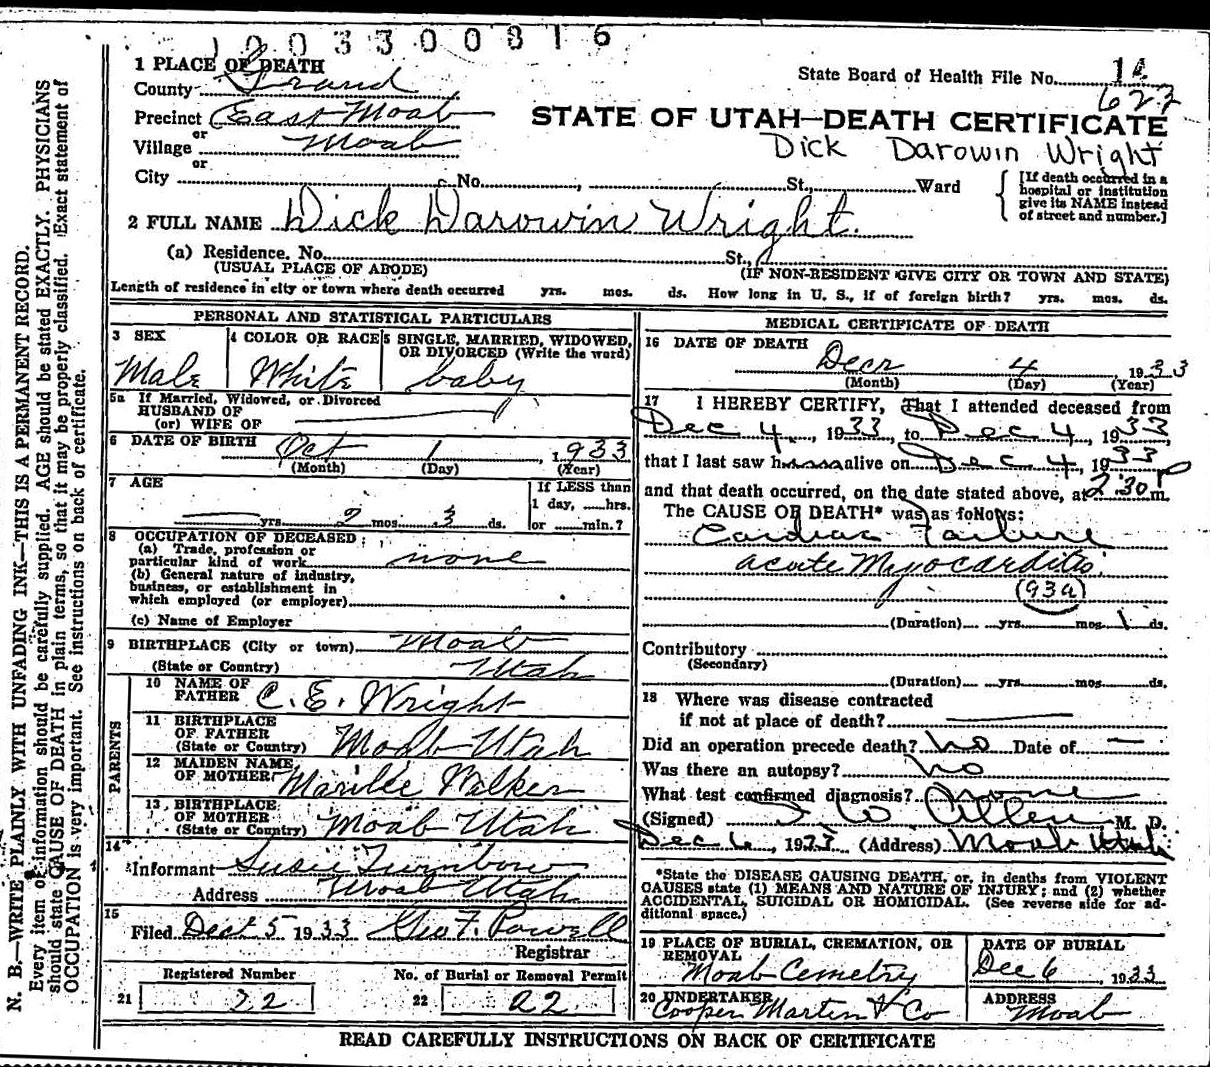 1003300816
1 PLACE OF DEATH
County Grand
State Board of Health File No. 14
622
Precinct East Moab
STATE OF UTAH—DEATH CERTIFICATE
or
Village Moab
Dick Darowin Wright
or
City No. St., Ward
[If death occurred in a
hospital or institution
give its NAME instead
of street and number.]
2 FULL NAME Dick Darowin Wright.
(a) Residence. No. St.,
(USUAL PLACE OF ABODE) (IF NON-RESIDENT GIVE CITY OR TOWN AND STATE)
Length of residence in city or town where death occurred yrs. mos. ds. How long in U. S., if of foreign birth? yrs. mos. ds.
PERSONAL AND STATISTICAL PARTICULARS
3 SEX
Male
4 COLOR OR RACE
White
5 SINGLE, MARRIED, WIDOWED,
OR DIVORCED (Write the word)
baby
5a If Married, Widowed, or Divorced
HUSBAND OF
(or) WIFE OF
6 DATE OF BIRTH
Oct 1 1933
(Month) (Day) (Year)
7 AGE
yrs. 2 mos. 3 ds.
If LESS than
1 day, hrs.
or min.?
8 OCCUPATION OF DECEASED:
(a) Trade, profession or
particular kind of work none
(b) General nature of industry,
business, or establishment in
which employed (or employer)
(c) Name of Employer
9 BIRTHPLACE (City or town) Moab
(State or Country) Utah
PARENTS
10 NAME OF
FATHER C. E. Wright
11 BIRTHPLACE
OF FATHER
(State or Country) Moab Utah
12 MAIDEN NAME
OF MOTHER Marilee Walker
13 BIRTHPLACE
OF MOTHER
(State or Country) Moab Utah
14
Informant Susie Turnbow
Address Moab Utah
15
Filed Dec 5 1933 Geo F. Powell
Registrar
Registered Number No. of Burial or Removal Permit
21 22 22 22
MEDICAL CERTIFICATE OF DEATH
16 DATE OF DEATH
Decr 4, 1933
(Month) (Day) (Year)
17 I HEREBY CERTIFY, That I attended deceased from
Dec 4, 1933, to Dec 4, 1933,
that I last saw h alive on Dec 4, 1933
and that death occurred, on the date stated above, at 2:30 P m.
The CAUSE OF DEATH* was as follows:
Cardiac Failure
acute Myocarditis.
(93a)
(Duration) yrs. mos. 1 ds.
Contributory
(Secondary)
(Duration) yrs. mos. ds.
18 Where was disease contracted
if not at place of death?
Did an operation precede death? No Date of —
Was there an autopsy? No
What test confirmed diagnosis? None
(Signed) Allen M. D.
Dec 6, 1933 (Address) Moab Utah
*State the DISEASE CAUSING DEATH, or, in deaths from VIOLENT
CAUSES state (1) MEANS AND NATURE OF INJURY; and (2) whether
ACCIDENTAL, SUICIDAL OR HOMICIDAL. (See reverse side for ad-
ditional space.)
19 PLACE OF BURIAL, CREMATION, OR
REMOVAL
Moab Cemetry
DATE OF BURIAL
Dec 6, 1933
20 UNDERTAKER
Cooper Martin & Co
ADDRESS
Moab
READ CAREFULLY INSTRUCTIONS ON BACK OF CERTIFICATE
N. B.—WRITE PLAINLY WITH UNFADING INK—THIS IS A PERMANENT RECORD.
Every item of information should be carefully supplied. AGE should be stated EXACTLY. PHYSICIANS
should state CAUSE OF DEATH in plain terms, so that it may be properly classified. Exact statement of
OCCUPATION is very important. See instructions on back of certificate.